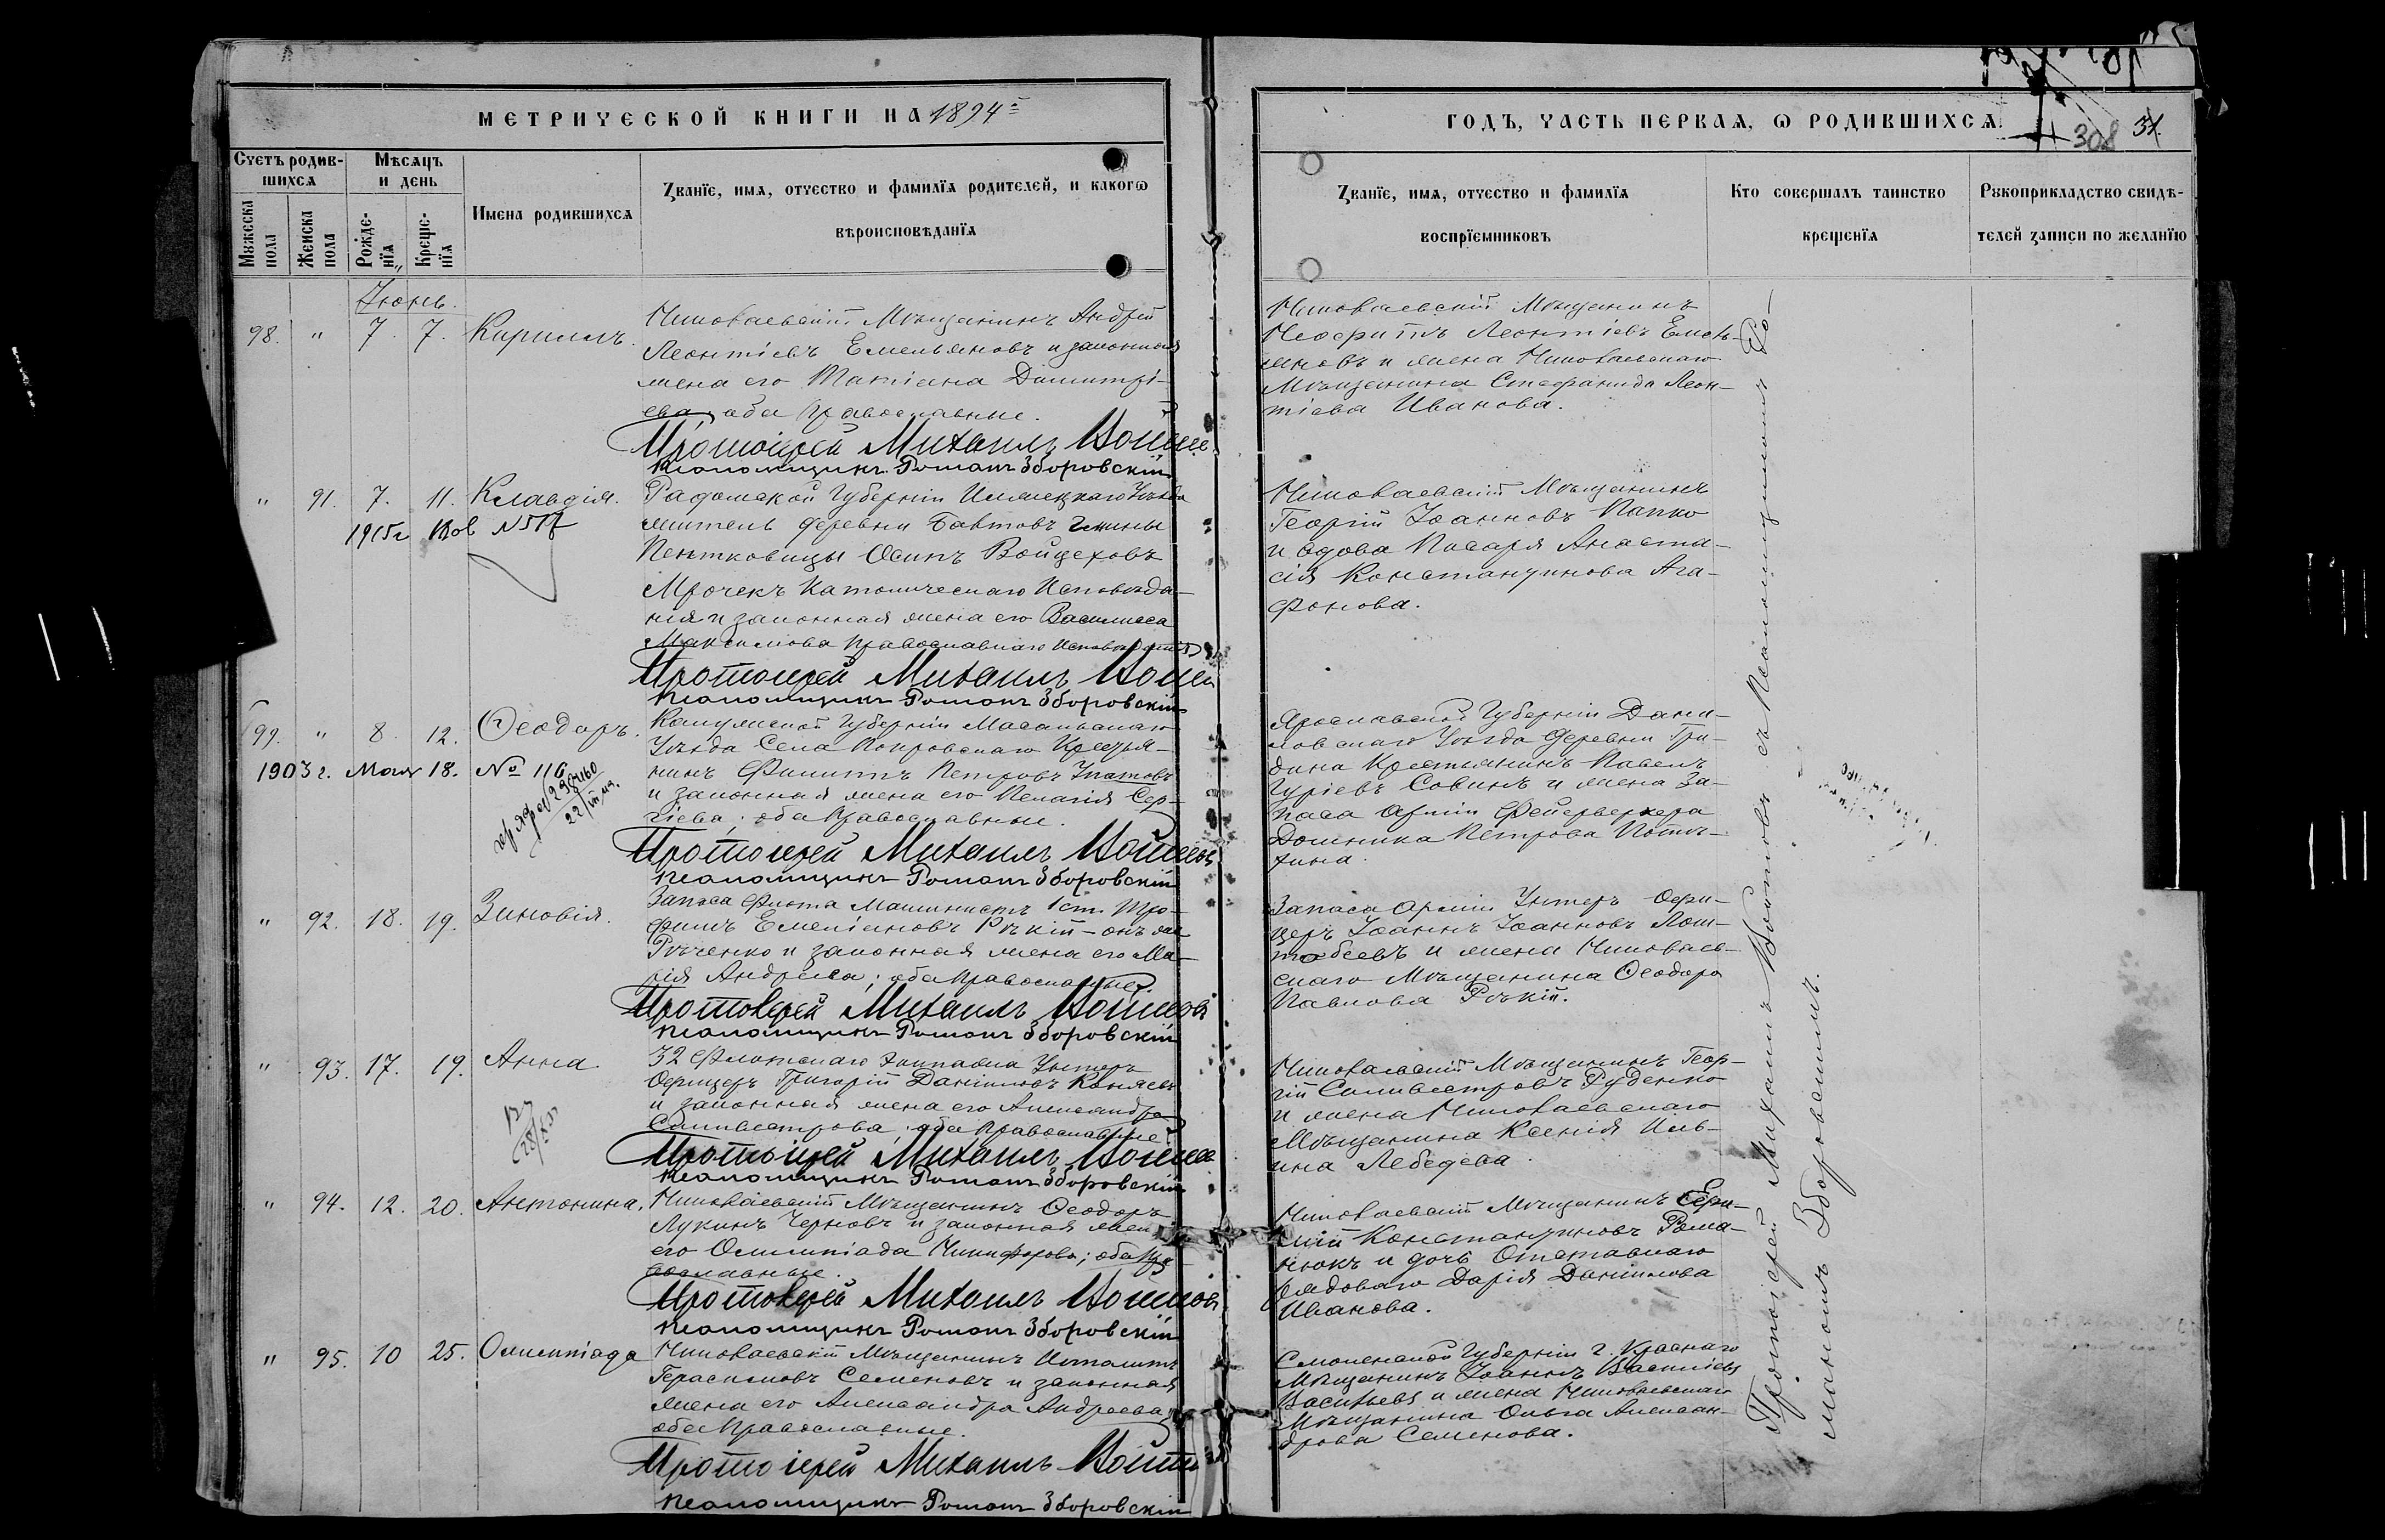 МЕТРИЧЕСКОЙ КНИГИ НА 1894
ГОДЪ, ЧАСТЬ ПЕРВАЯ, Ѡ РОДИВШИХСЯ.
308 31.
Счетъ родив-
шихся
Мѣсяцъ
и день
Мужеска
пола
Женска
пола
Рожде-
нїя
Креще-
нїя
Имена родившихся
Званїе, имя, отчество и фамилїя родителей, и какогѡ
вѣроисповѣданїя
Званїе, имя, отчество и фамилїя
воспрїемниковъ
Кто совершалъ таинство
крещенїя
Рукоприкладство свидѣ-
телей записи по желанїю
Іюнь.
98. " 7. 7. Кириллъ.
Николаевскій Мѣщанинъ Андрей
Леонтіевъ Емельяновъ и законная
жена его Татіана Димитрі-
ева, оба православные.
Протоіерей Михаилъ Войтов
Псаломщикъ Романъ Зборовскій
Николаевскій Мѣщанинъ
Неофитъ Леонтіевъ Емель-
яновъ и жена Николаевскаго
Мѣщанина Стефанида Леон-
тіева Иванова.
" 91. 7. 11. Клавдія.
1915г
Радомской Губерніи Илжецкаго Уѣзда
житель деревни Бавтовъ гмины
Пентковицы Осипъ Войцеховъ
Мрочекъ Католическаго Исповѣда-
нія и законная жена его Василиса
Максимова Православнаго Исповѣданія
Протоіерей Михаилъ Войтов
Псаломщикъ Романъ Зборовскій
Николаевскій Мѣщанинъ
Георгій Іоанновъ Папко
и вдова Писаря Анаста-
сія Константинова Ага-
фонова.
99. " 8. 12. Ѳеодоръ.
1903 г. Мая 18. № 116
Калужской Губерніи Масальскаго
Уѣзда Села Покровскаго Крестья-
нинъ Филиппъ Петровъ Игнатовъ
и законная жена его Пелагія Сер-
гіева; оба Православные.
Протоіерей Михаилъ Войтов
Псаломщикъ Романъ Зборовскій
Ярославской Губерніи Дани-
ловскаго Уѣзда деревни Гри-
дина Крестьянинъ Павелъ
Гуріевъ Совинъ и жена За-
паса Арміи Фейерверкера
Домника Петрова Поть-
хина.
" 92. 18. 19. Зиновія.
Запаса Флота Машинистъ 1 ст. Тро-
фимъ Емеліановъ Рѣкій - онъ же
Рѣченко и законная жена его Ма-
рія Андреева; оба Православные.
Протоіерей Михаилъ Войтов
Псаломщикъ Романъ Зборовскій
Запаса Арміи Унтеръ-Офи-
церъ Іоаннъ Іоанновъ
и жена Николаев-
скаго Мѣщанина Ѳеодора
Павлова Рѣкій.
" 93. 17. 19. Анна
32 Флотскаго Экипажа Унтеръ
Офицеръ Григорій Даніиловъ Коняевъ
и законная жена его Александра
Силивестрова; оба Православные.
Протоіерей Михаилъ Войтов
Псаломщикъ Романъ Зборовскій
Николаевскій Мѣщанинъ Геор-
гій Силивестровъ Руденко
и жена Николаевскаго
Мѣщанина Ксенія Иль-
ина Лебедева.
" 94. 12. 20. Антонина.
Николаевскій Мѣщанинъ Ѳеодоръ
Лукинъ Черновъ и законная жена
его Олимпіада Никифорова; оба Пра-
вославные.
Протоіерей Михаилъ Войтов
Псаломщикъ Романъ Зборовскій
Николаевскій Мѣщанинъ
Константиновъ Рома-
нюкъ и дочь Отставнаго
рядоваго Дарія Даніилова
Иванова.
" 95. 10 25. Олимпіада
Николаевскій Мѣщанинъ Ипполитъ
Герасимовъ Семеновъ и законная
жена его Александра Андреева,
оба Православные.
Протоіерей Михаилъ Войтов
Псаломщикъ Романъ Зборовскій
Смоленской Губерніи г. Краснаго
Мѣщанинъ Іоаннъ Васильевъ
Васильевъ и жена Николаевскаго
Мѣщанина Ольга Алексан-
дрова Семенова.
Протоіерей Михаилъ Войтовъ съ Псаломщикомъ Ро-
маномъ Зборовскимъ.